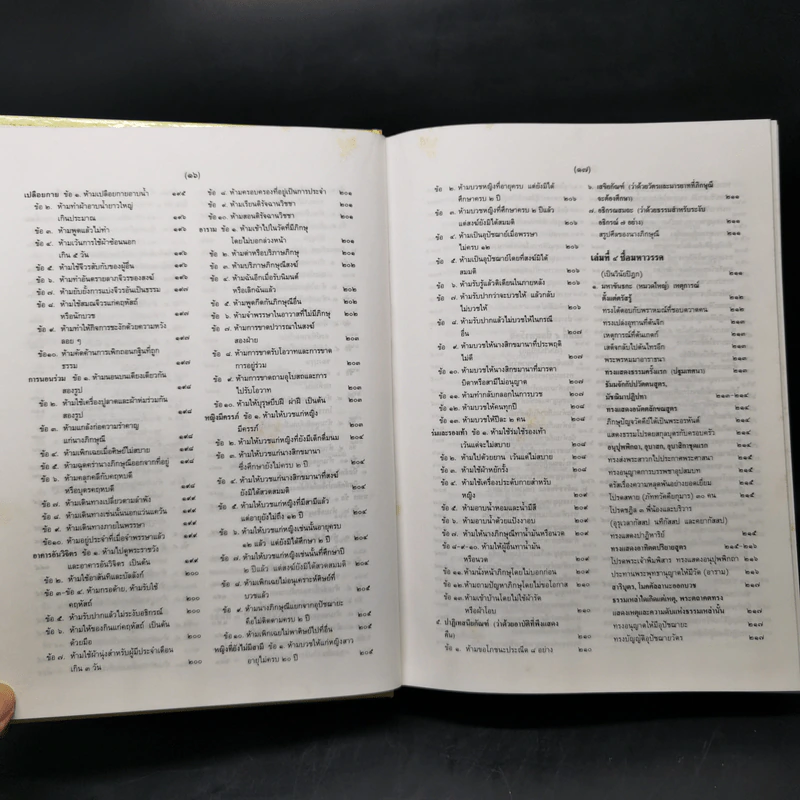 (๑๖)
เปลือยกาย ข้อ ๑. ห้ามเปลือยกายอาบน้ำ ๑๙๕
ข้อ ๒. ห้ามทำผ้าอาบน้ำยาวใหญ่
เกินประมาณ ๑๙๖
ข้อ ๓. ห้ามพูดแล้วไม่ทำ ๑๙๖
ข้อ ๔. ห้ามเว้นการใช้ผ้าซ้อนนอก
เกิน ๕ วัน ๑๙๖
ข้อ ๕. ห้ามใช้จีวรสับกับของผู้อื่น ๑๙๖
ข้อ ๖. ห้ามทำอันตรายลาภจีวรของสงฆ์ ๑๙๖
ข้อ ๗. ห้ามยับยั้งการแบ่งจีวรอันเป็นธรรม ๑๙๖
ข้อ ๘. ห้ามให้สมณจีวรแก่คฤหัสถ์
หรือนักบวช ๑๙๖
ข้อ ๙. ห้ามทำให้กิจการชะงักด้วยความหวัง
ลอย ๆ ๑๙๖
ข้อ๑๐. ห้ามคัดค้านการเพิกถอนกฐินที่ถูก
ธรรม ๑๙๘
การนอนร่วม ข้อ ๑. ห้ามนอนบนเตียงเดียวกัน
สองรูป ๑๙๘
ข้อ ๒. ห้ามใช้เครื่องปูลาดและผ้าห่มร่วมกัน
สองรูป ๑๙๘
ข้อ ๓. ห้ามแกล้งก่อความรำคาญ
แก่นางภิกษุณี ๑๙๘
ข้อ ๔. ห้ามเพิกเฉยเมื่อศิษย์ไม่สบาย ๑๙๘
ข้อ ๕. ห้ามฉุดคร่านางภิกษุณีออกจากที่อยู่ ๑๙๘
ข้อ ๖. ห้ามคลุกคลีกับคฤหบดี
หรือบุตรคฤหบดี ๑๙๘
ข้อ ๗. ห้ามเดินทางเปลี่ยวตามลำพัง ๑๙๘
ข้อ ๘. ห้ามเดินทางเช่นนั้นนอกแว่นแคว้น ๑๙๙
ข้อ ๙. ห้ามเดินทางภายในพรรษา ๑๙๙
ข้อ๑๐. ห้ามอยู่ประจำที่เมื่อจำพรรษาแล้ว ๑๙๙
อาคารอันวิจิตร ข้อ ๑. ห้ามไปดูพระราชวัง
และอาคารอันวิจิตร เป็นต้น ๑๙๙
ข้อ ๒. ห้ามใช้อาสันทิและบัลลังก์ ๒๐๐
ข้อ ๓-ข้อ ๔. ห้ามกรอด้าย, ห้ามรับใช้
คฤหัสถ์ ๒๐๐
ข้อ ๕. ห้ามรับปากแล้วไม่ระงับอธิกรณ์ ๒๐๐
ข้อ ๖. ห้ามให้ของกินแก่คฤหัสถ์ เป็นต้น
ด้วยมือ ๒๐๐
ข้อ ๗. ห้ามใช้ผ้านุ่งสำหรับผู้มีประจำเดือน
เกิน ๓ วัน ๒๐๐
ข้อ ๘. ห้ามครอบครองที่อยู่เป็นการประจำ ๒๐๑
ข้อ ๙. ห้ามเรียนดิรัจฉานวิชชา ๒๐๑
ข้อ๑๐. ห้ามสอนดิรัจฉานวิชชา ๒๐๑
อาราม ข้อ ๑. ห้ามเข้าไปในวัดที่มีภิกษุ
โดยไม่บอกล่วงหน้า ๒๐๑
ข้อ ๒. ห้ามด่าหรือบริภาษภิกษุ ๒๐๒
ข้อ ๓. ห้ามบริภาษภิกษุณีสงฆ์ ๒๐๒
ข้อ ๔. ห้ามฉันอีกเมื่อรับนิมนต์
หรือเลิกฉันแล้ว ๒๐๒
ข้อ ๕. ห้ามพูดกีดกันภิกษุณีอื่น ๒๐๒
ข้อ ๖. ห้ามจำพรรษาในอาวาสที่ไม่มีภิกษุ ๒๐๒
ข้อ ๗. ห้ามการขาดปวารณาในสงฆ์
สองฝ่าย ๒๐๓
ข้อ ๘. ห้ามการขาดรับโอวาทและการขาด
การอยู่ร่วม ๒๐๓
ข้อ ๙. ห้ามการขาดถามอุโบสถและการ
ไปรับโอวาท ๒๐๓
ข้อ ๑๐. ห้ามให้บุรุษบีบฝี ผ่าฝี เป็นต้น ๒๐๓
หญิงมีครรภ์ ข้อ ๑. ห้ามให้บวชแก่หญิง
มีครรภ์ ๒๐๔
ข้อ ๒. ห้ามให้บวชแก่หญิงที่ยังมีเด็กดื่มนม ๒๐๔
ข้อ ๓. ห้ามให้บวชแก่นางสิกขมานา
ซึ่งศึกษายังไม่ครบ ๒ ปี ๒๐๔
ข้อ ๔. ห้ามให้บวชแก่นางสิกขมานาที่สงฆ์
ยังมิได้สวดสมมติ ๒๐๔
ข้อ ๕. ห้ามให้บวชแก่หญิงที่มีสามีแล้ว
แต่อายุยังไม่ถึง ๑๒ ปี ๒๐๔
ข้อ ๖. ห้ามให้บวชแก่หญิงเช่นนั้นอายุครบ
๑๒ แล้ว แต่ยังมิได้ศึกษา ๒ ปี ๒๐๔
ข้อ ๗. ห้ามให้บวชแก่หญิงเช่นนั้นที่ศึกษาปี
๒ ปีแล้ว แต่สงฆ์ยังมิได้สวดสมมติ ๒๐๕
ข้อ ๘. ห้ามเพิกเฉยไม่อนุเคราะห์ศิษย์ที่
บวชแล้ว ๒๐๕
ข้อ ๙. ห้ามนางภิกษุณีแยกจากอุปัชฌายะ
คือไม่ติดตามครบ ๒ ปี ๒๐๕
ข้อ๑๐. ห้ามเพิกเฉยไม่พาศิษย์ไปที่อื่น ๒๐๕
หญิงที่ยังไม่มีสามี ข้อ ๑. ห้ามบวชให้แก่หญิงสาว
อายุไม่ครบ ๒๐ ปี ๒๐๕
(๑๗)
ข้อ ๒. ห้ามบวชหญิงที่อายุครบ แต่ยังมิได้
ศึกษาครบ ๒ ปี ๒๐๖
ข้อ ๓. ห้ามบวชหญิงที่ศึกษาครบ ๒ ปีแล้ว
แต่สงฆ์มิได้สวดสมมติ ๒๐๖
ข้อ ๔. ห้ามเป็นอุปัชฌาย์เมื่อพรรษา
ไม่ครบ ๑๒ ๒๐๖
ข้อ ๕. ห้ามเป็นอุปัชฌาย์โดยที่สงฆ์มิได้
สมมติ ๒๐๖
ข้อ ๖. ห้ามรับรู้แล้วติเตียนในภายหลัง ๒๐๖
ข้อ ๗. ห้ามรับปากว่าจะบวชให้ แล้วกลับ
ไม่บวชให้ ๒๐๗
ข้อ ๘. ห้ามรับปากแล้วไม่บวชให้ในกรณี
อื่น ๒๐๗
ข้อ ๙. ห้ามบวชให้นางสิกขมานาที่ประพฤติ
ไม่ดี ๒๐๗
ข้อ ๑๐. ห้ามบวชให้นางสิกขมานาที่มารดา
บิดาหรือสามีไม่อนุญาต ๒๐๘
ข้อ ๑๑. ห้ามทำกลับกลอกในการบวช ๒๐๘
ข้อ ๑๒. ห้ามบวชให้คนทุกปี ๒๐๘
ข้อ ๑๓. ห้ามบวชให้ปีละ ๒ คน ๒๐๘
ร่มและรองเท้า ข้อ ๑. ห้ามใช้ร่มใช้รองเท้า
เว้นแต่จะไม่สบาย ๒๐๘
ข้อ ๒. ห้ามไปด้วยยาน เว้นแต่ไม่สบาย ๒๐๘
ข้อ ๓. ห้ามใช้ผ้าหยักรั้ง ๒๐๙
ข้อ ๔. ห้ามใช้เครื่องประดับกายสำหรับ
หญิง ๒๐๙
ข้อ ๕. ห้ามอาบน้ำหอมและน้ำมีสี ๒๐๙
ข้อ ๖. ห้ามอาบน้ำด้วยแป้งงาอบ ๒๐๙
ข้อ ๗. ห้ามให้นางภิกษุณีทาน้ำมันหรือนวด ๒๐๙
ข้อ ๘-๙-๑๐. ห้ามให้ผู้อื่นทาน้ำมัน
หรือนวด ๒๑๐
ข้อ ๑๑. ห้ามนั่งหน้าภิกษุโดยไม่บอกก่อน ๒๑๐
ข้อ ๑๒. ห้ามถามปัญหาภิกษุโดยไม่ขอโอกาส ๒๑๐
ข้อ ๑๓. ห้ามเข้าบ้านโดยไม่ใช้ผ้ารัด
หรือผ้าโอบ ๒๑๐
๕. ปาฏิเทสนียกัณฑ์ (ว่าด้วยอาบัติที่พึงแสดง
คืน) ๒๑๐
ข้อ ๑. ห้ามขอโภชนะประณีต ๘ อย่าง ๒๑๐
๖. เสขิยกัณฑ์ (ว่าด้วยวัตรและมารยาทที่ภิกษุณี
จะต้องศึกษา) ๒๑๑
๗. อธิกรณสมถะ (ว่าด้วยธรรมสำหรับระงับ
อธิกรณ์ ๗ อย่าง) ๒๑๑
สรุปศีลของนางภิกษุณี ๒๑๑
เล่มที่ ๔ ชื่อมหาวรรค
(เป็นวินัยปิฎก) ๒๑๑
๑. มหาขันธกะ (หมวดใหญ่) เหตุการณ์
ตั้งแต่ตรัสรู้ ๒๑๒
ทรงโต้ตอบกับพราหมณ์ที่ชอบตวาดคน ๒๑๒
ทรงเปล่งอุทานที่ต้นจิก ๒๑๓
เหตุการณ์ที่ต้นเกตก์ ๒๑๓
เสด็จกลับไปต้นไทรอีก ๒๑๓
พระพรหมมาอาราธนา ๒๑๓
ทรงแสดงธรรมครั้งแรก (ปฐมเทศนา) ๒๑๓
ธัมมจักกัปปวัตตนสูตร,
มัชฌิมาปฏิปทา ๒๑๓-๒๑๔
ทรงแสดงอนัตตลักขณสูตร ๒๑๔
ภิกษุปัญจวัคคีย์ได้เป็นพระอรหันต์ ๒๑๔
แสดงธรรมโปรดยสกุลบุตรกับครอบครัว ๒๑๔
อนุปุพพิกถา, อุบาสก, อุบาสิกาชุดแรก ๒๑๔
ทรงส่งพระสาวกไปประกาศพระศาสนา ๒๑๕
ทรงอนุญาตการบรรพชาอุปสมบท ๒๑๕
ตรัสเรื่องความหลุดพ้นอย่างยอดเยี่ยม ๒๑๕
โปรดสหาย (ภัททวัคคิยกุมาร) ๓๐ คน ๒๑๕
โปรดชฎิล ๓ พี่น้องและบริวาร
(อุรุเวลากัสสป นทีกัสสป และคยากัสสป)
ทรงแสดงปาฏิหาริย์ ๒๑๕
ทรงแสดงอาทิตตปริยายสูตร ๒๑๕-๒๑๖
โปรดพระเจ้าพิมพิสาร ทรงแสดงอนุปุพพิกถา ๒๑๖
ประทานพระพุทธานุญาตให้มีวัด (อาราม) ๒๑๖
สาริบุตร, โมคคัลลานะออกบวช ๒๑๗
ธรรมเหล่าใดเกิดแต่เหตุ, พระตถาคตทรง
แสดงเหตุและความดับแห่งธรรมเหล่านั้น ๒๑๗
ทรงอนุญาตให้มีอุปัชฌายะ ๒๑๗
ทรงบัญญัติอุปัชฌายวัตร ๒๑๗